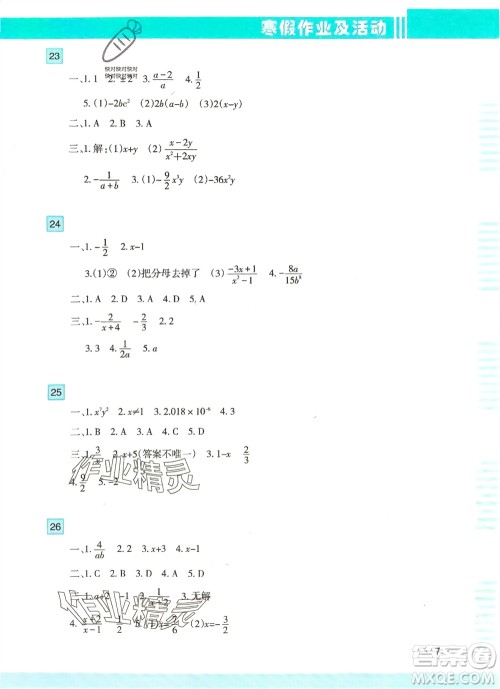 寒假作业及活动
23
快对快对快对
快对快对快对
一、1. 1 2. ±2 3. (a-2)/a 4. 1/2
5. (1)-2bc² (2)2(a-b) (3)2(x-y)
二、1. A 2. B 3. A
三、1. 解：(1)x+y (2)(x-2y)/(x²+2xy)
2. -1/(a+b) 3. (1)-9/2 x³ (2)-36x²
24
一、1. -1/2 2. x-1
3. (1)② (2)把分母去掉了 (3)(-3x+1)/(x²-1) 4. -8a/(15b⁸)
二、1. A 2. D 3. D 4. D
三、1. -2/(x+4) 2. -2/3
3. 3 4. 1/(2a) 5. a
25
一、1. x⁷y² 2. x≠1 3. 2.018×10⁻⁶ 4. 3
二、1. A 2. D 3. A 4. C 5. D
三、1. 3/x 2. x+5(答案不唯一) 3. 1-x 2/3
4. 9/2 5. -2
作业精灵
26
一、1. 4/(ab) 2. 2 3. x+3 4. x-1
二、1. C 2. B 3. D 4. D 5. B
作业精灵
3. 无解
(2)x=-3/2
7
答案圈
MXQE.COM